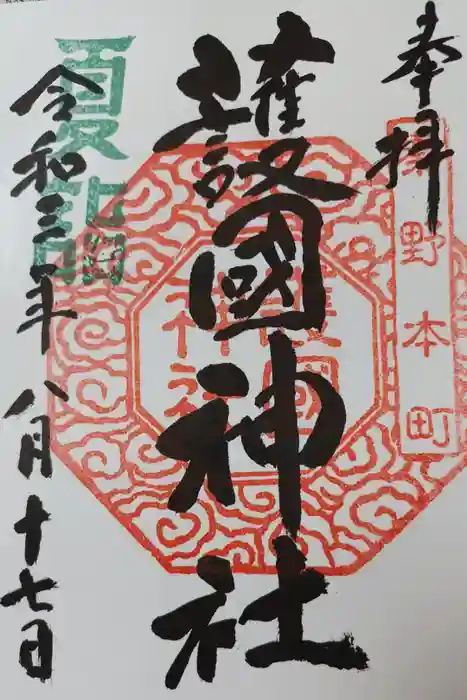 奉拝
野本町
護國神社
護國神社
夏詣
令和三年八月十七日